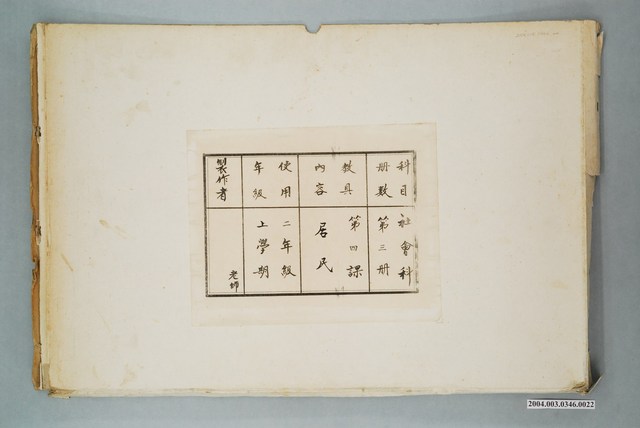 科目
社會科
册數
第三册
教具
內容
第四課
居民
使用
年級
二年級
上學期
製作者
老師
2004.003.0346.0022